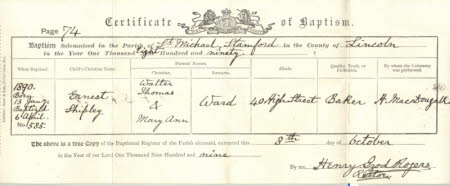 Certificate of Baptism.
Page 74
Baptism Solemnized in the Parish of St. Michael, Stamford in the County of Lincoln
in the Year One Thousand Eight Hundred and ninety
When Baptized. Child's Christian Name. Parents' Names. Abode. Quality, Trade, or Profession. By whom the Ceremony was performed.
Christian. Surname.
1890. Born 13 Jany. Baptized 6 April. No. 535. Ernest Shipley Walter Thomas & Mary Ann Ward 40 High Street Baker H. MacDougall
The above is a true Copy of the Baptismal Register of the Parish aforesaid, extracted this 8th day of October
in the Year of our Lord One Thousand Nine Hundred and nine
By me, Henry Rogers
Rector